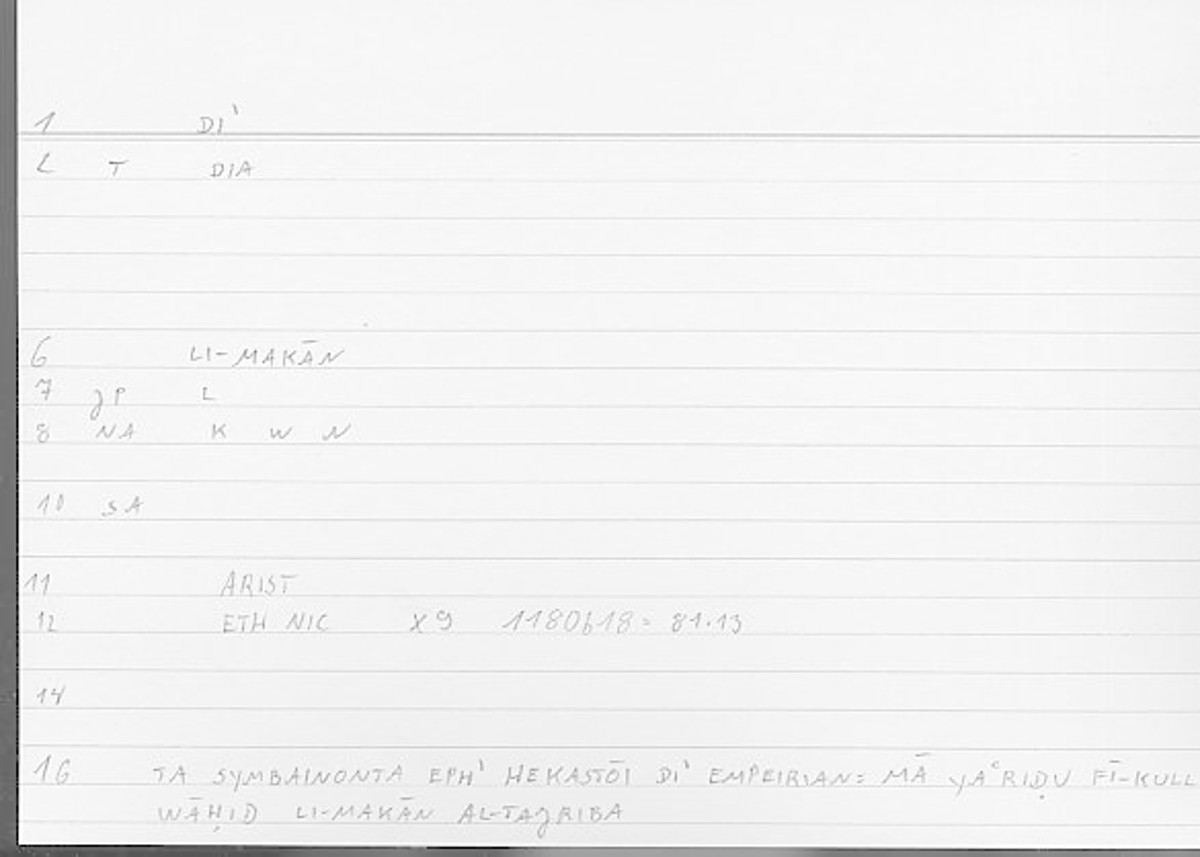 1 DI'
2 T DIA
6 LI-MAKĀN
7 JP L
8 NA K W N
10 SA
11 ARIST
12 ETH NIC X9 1180b18 = 81.13
14
16 TA SYMBAINONTA EPH' HEKASTŌI DI' EMPEIRIAN = MĀ YAʿRIḌU FĪ-KULL
WĀḤID LI-MAKĀN AL-TAJRIBA